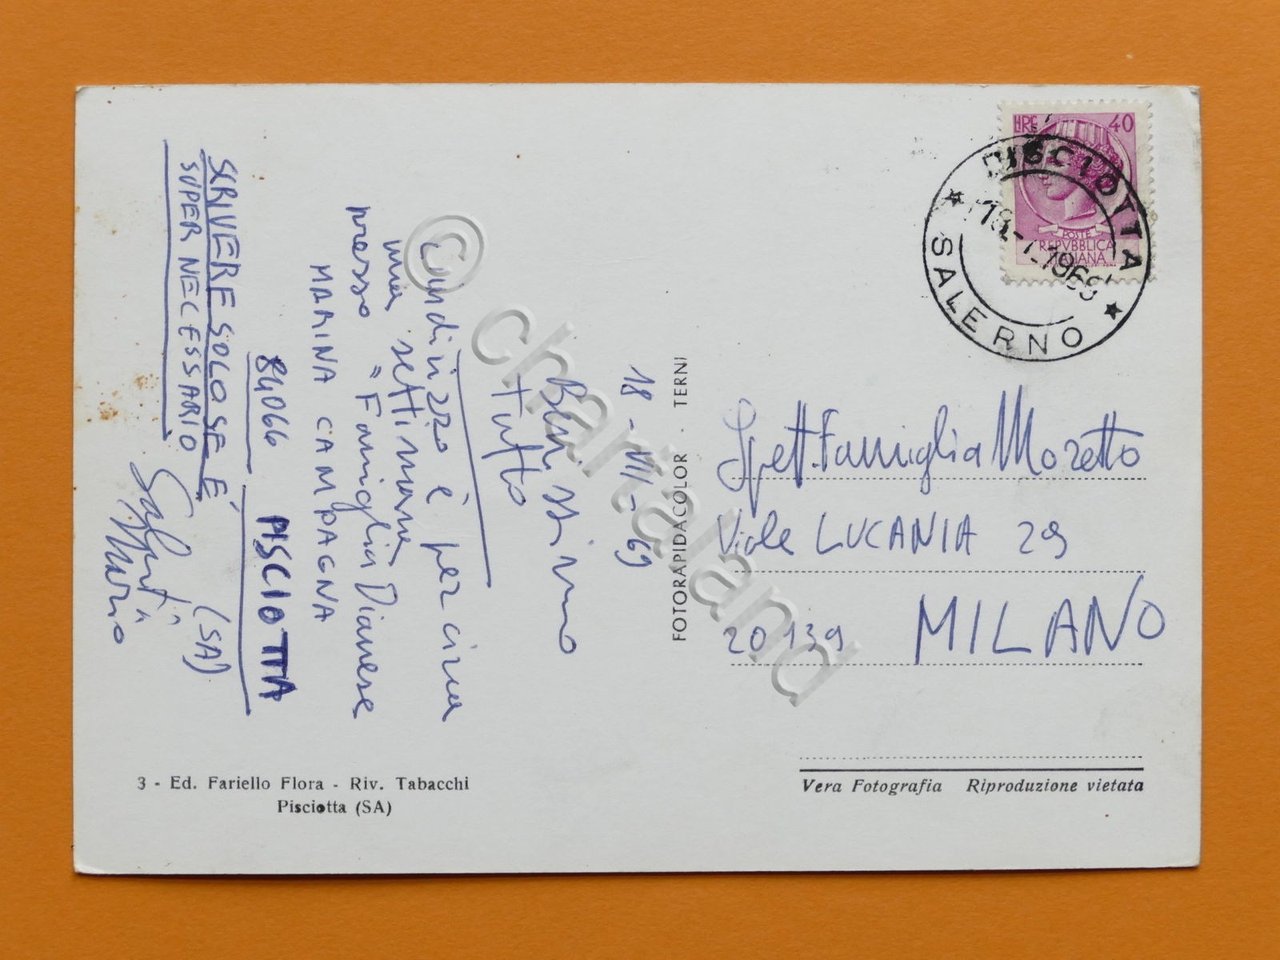 18-VII-69
Benissimo
tutto
L'indirizzo è per circa
una settimana
presso "Famiglia Dianese
MARINA CAMPAGNA
84066 PISCIOTTA
(SA)
SCRIVERE SOLO SE È
SUPER NECESSARIO
Saluti
Mario
3 - Ed. Fariello Flora - Riv. Tabacchi
Pisciotta (SA)
FOTORAPIDACOLOR - TERNI
LIRE 40
POSTE
REPVBBLICA
ITALIANA
PISCIOTTA
18.-7.1969
SALERNO
Spett. Famiglia Mozetto
Viale LUCANIA 29
20139 MILANO
Vera Fotografia Riproduzione vietata
© chartaland